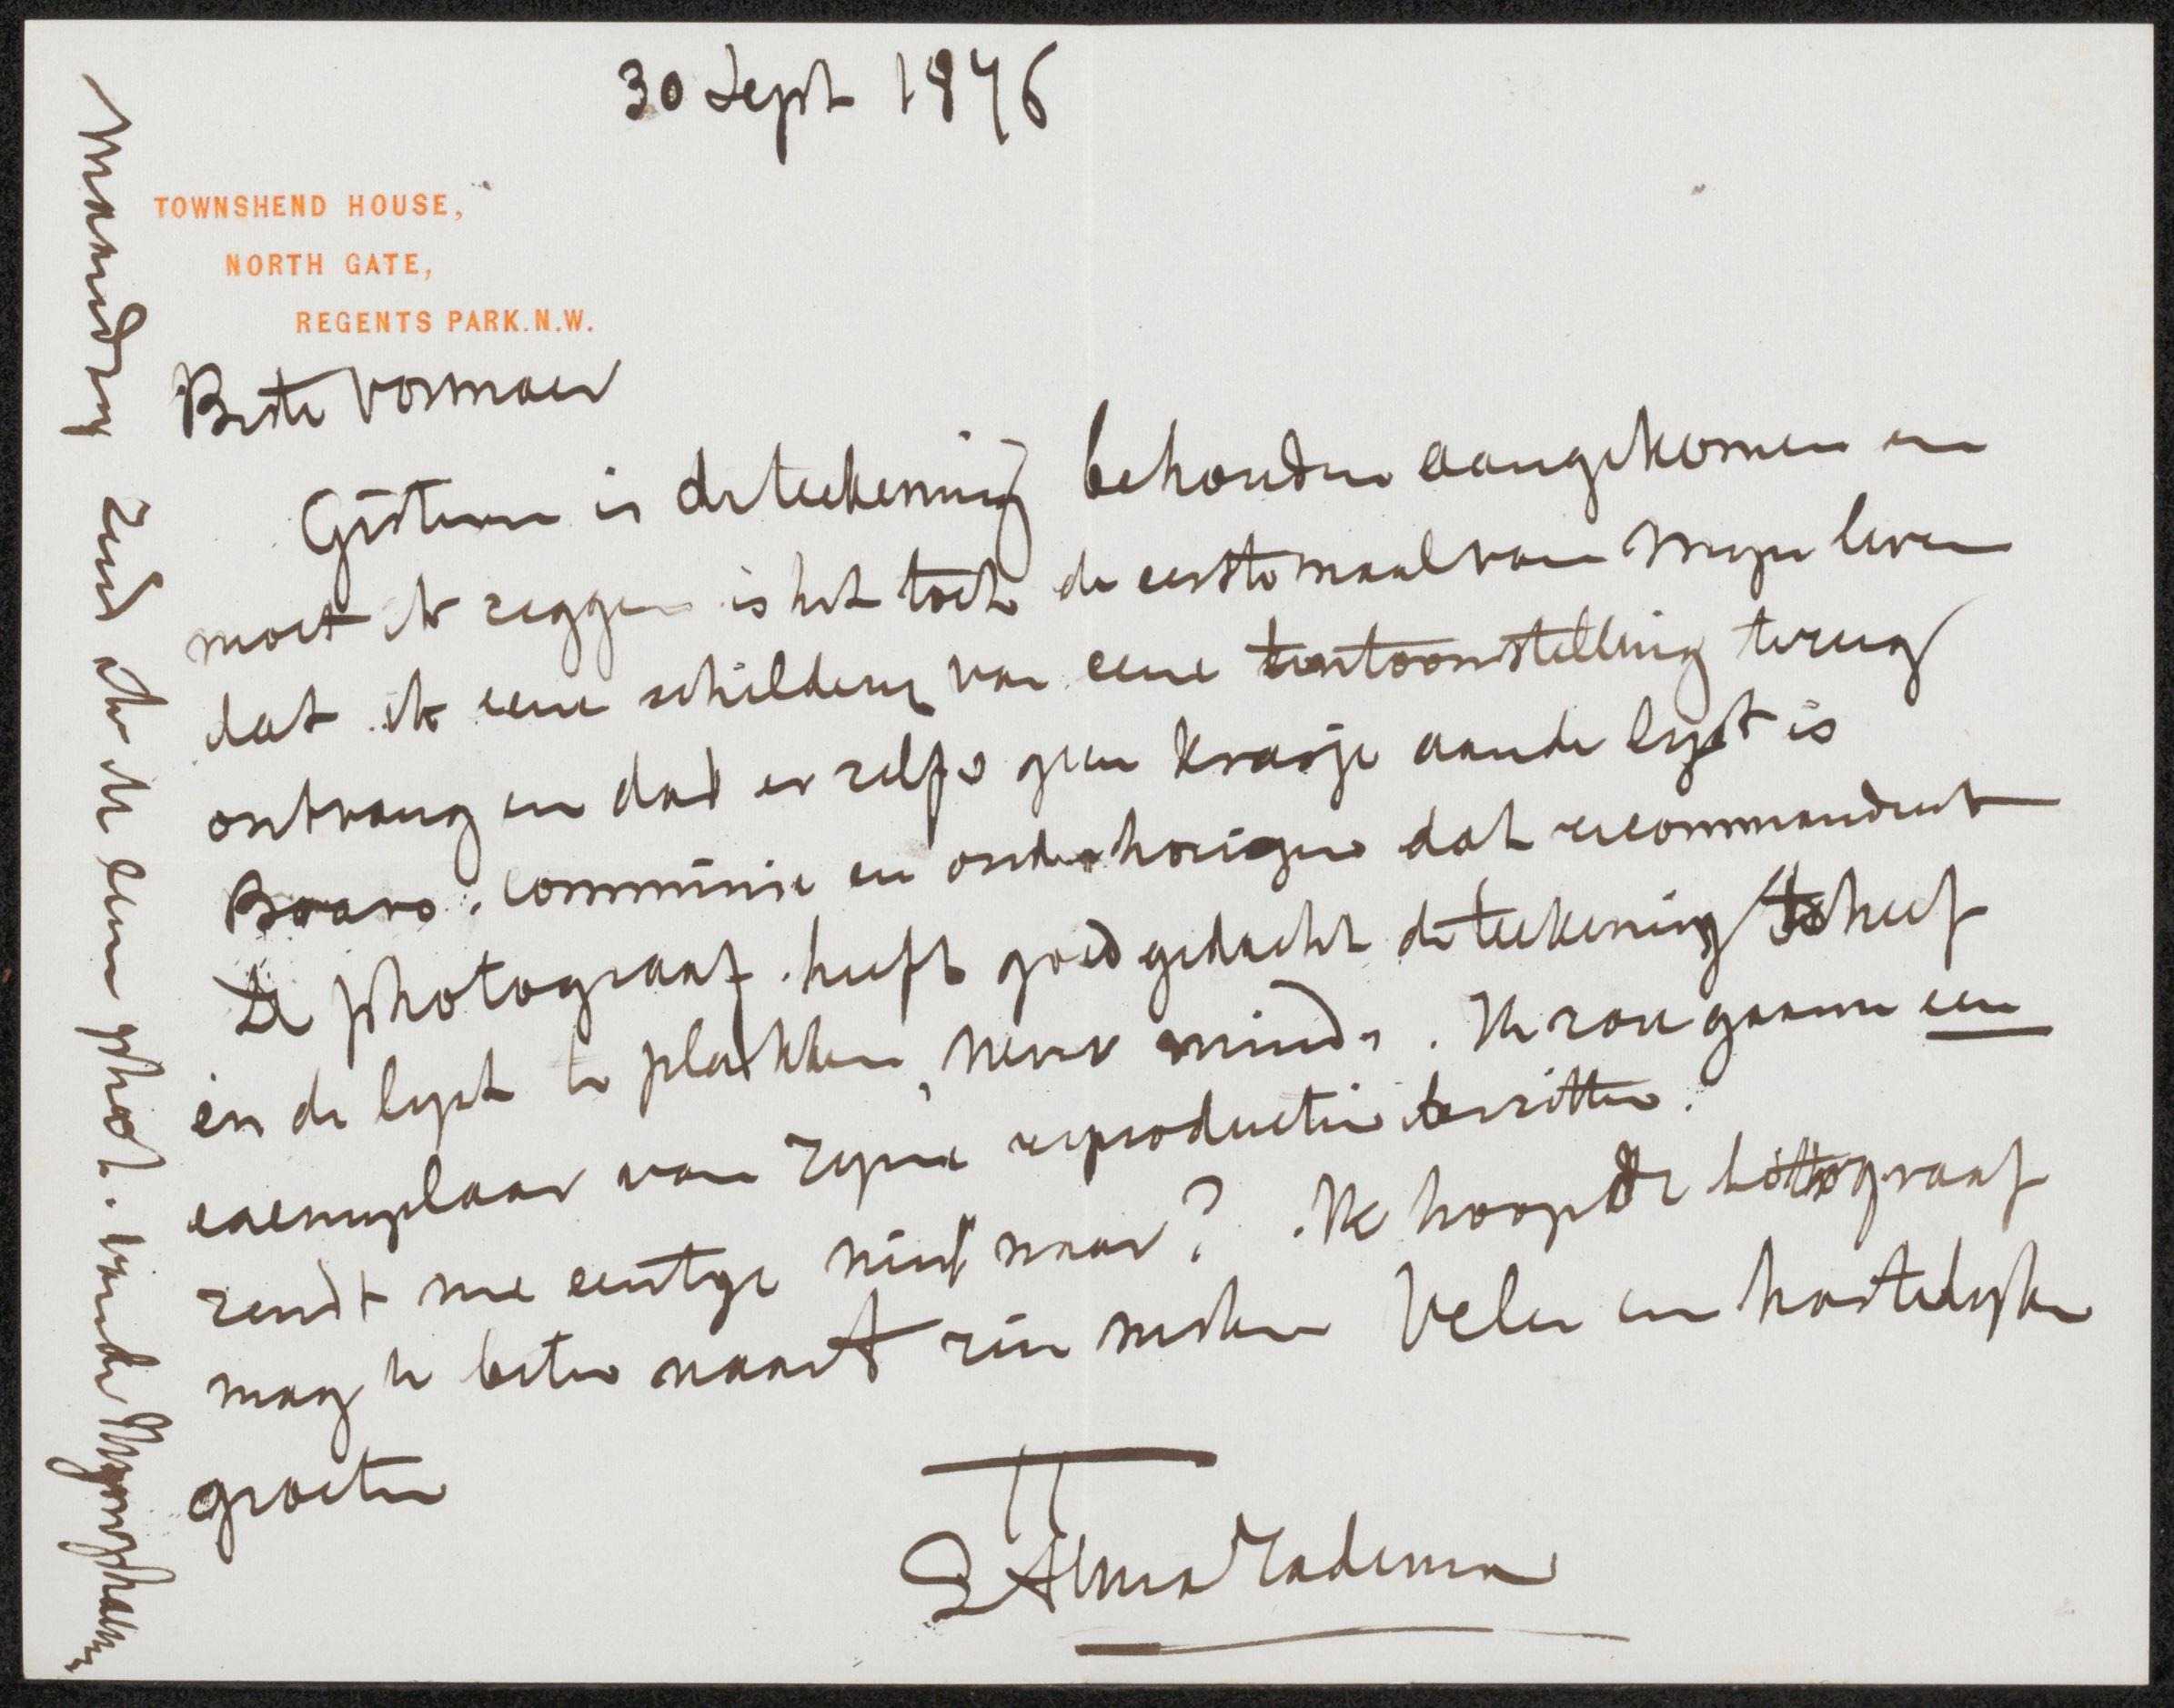 30 Sept 1876
TOWNSHEND HOUSE,
NORTH GATE,
REGENTS PARK.N.W.
Beste Vosmaer
Gisteren is de teekening behouden aangekomen en
moet ik zeggen is het toch de eerste maal van myn leven
dat ik eene schildery van eene tentoonstelling terug
ontvang en dat er zelfs geen krasje aan de lyst is
Bravo. commissie en onderhoorigen dat recommandeert
De photograaf heeft goed gedacht de teekening scheef
in de lyst te plakken, never mind. Ik zou gaarne een
exemplaar van zyne reproductie bezitten.
zendt me eentge niet waar? Ik hoop de lithograaf
mag te beter naast zin meken Vele en hartelyke
groeten
L Alma Tadema
Maandag zend ik U een phot. van de